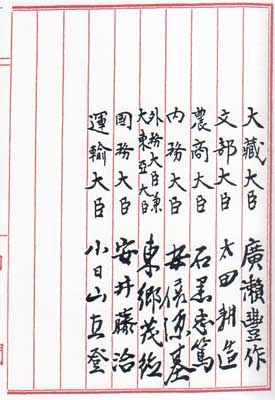 大藏大臣 廣瀨豐作
文部大臣 太田耕造
農商大臣 石黑忠篤
内務大臣 安倍源基
外務大臣兼大東亞大臣 東鄕茂德
國務大臣 安井藤治
運輸大臣 小日山直登